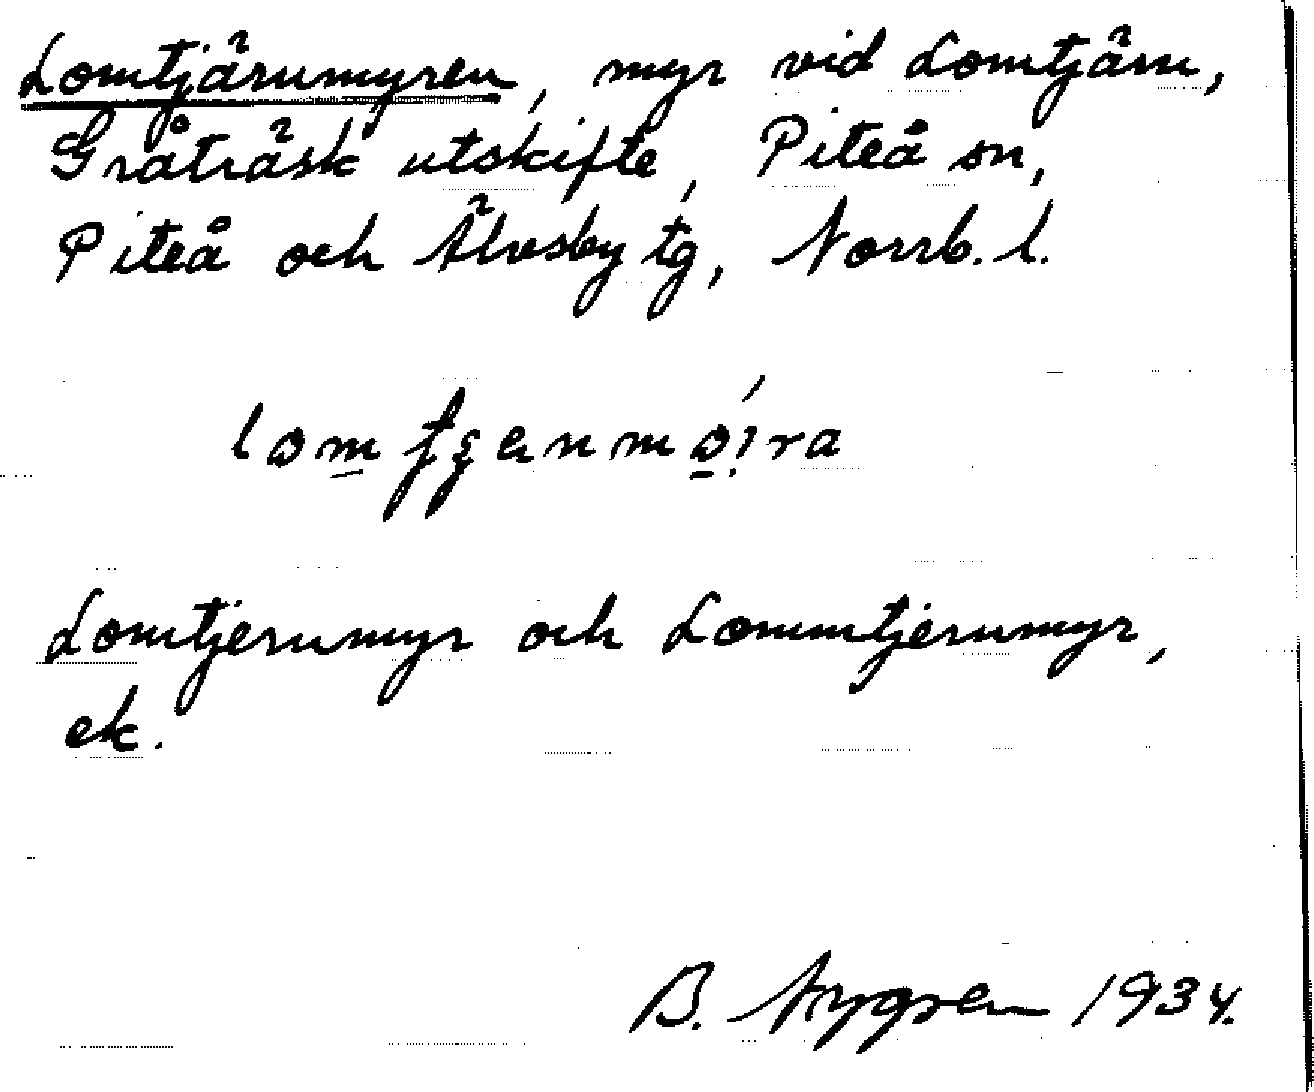 Lomtjärnmyren, myr vid Lomtjärn,
Gråträsk utskifte, Piteå sn,
Piteå och Älvsby tg, Norrb. l.
Lomtjernmyr och Lommtjernmyr,
ek.
B. Nygren 1934.